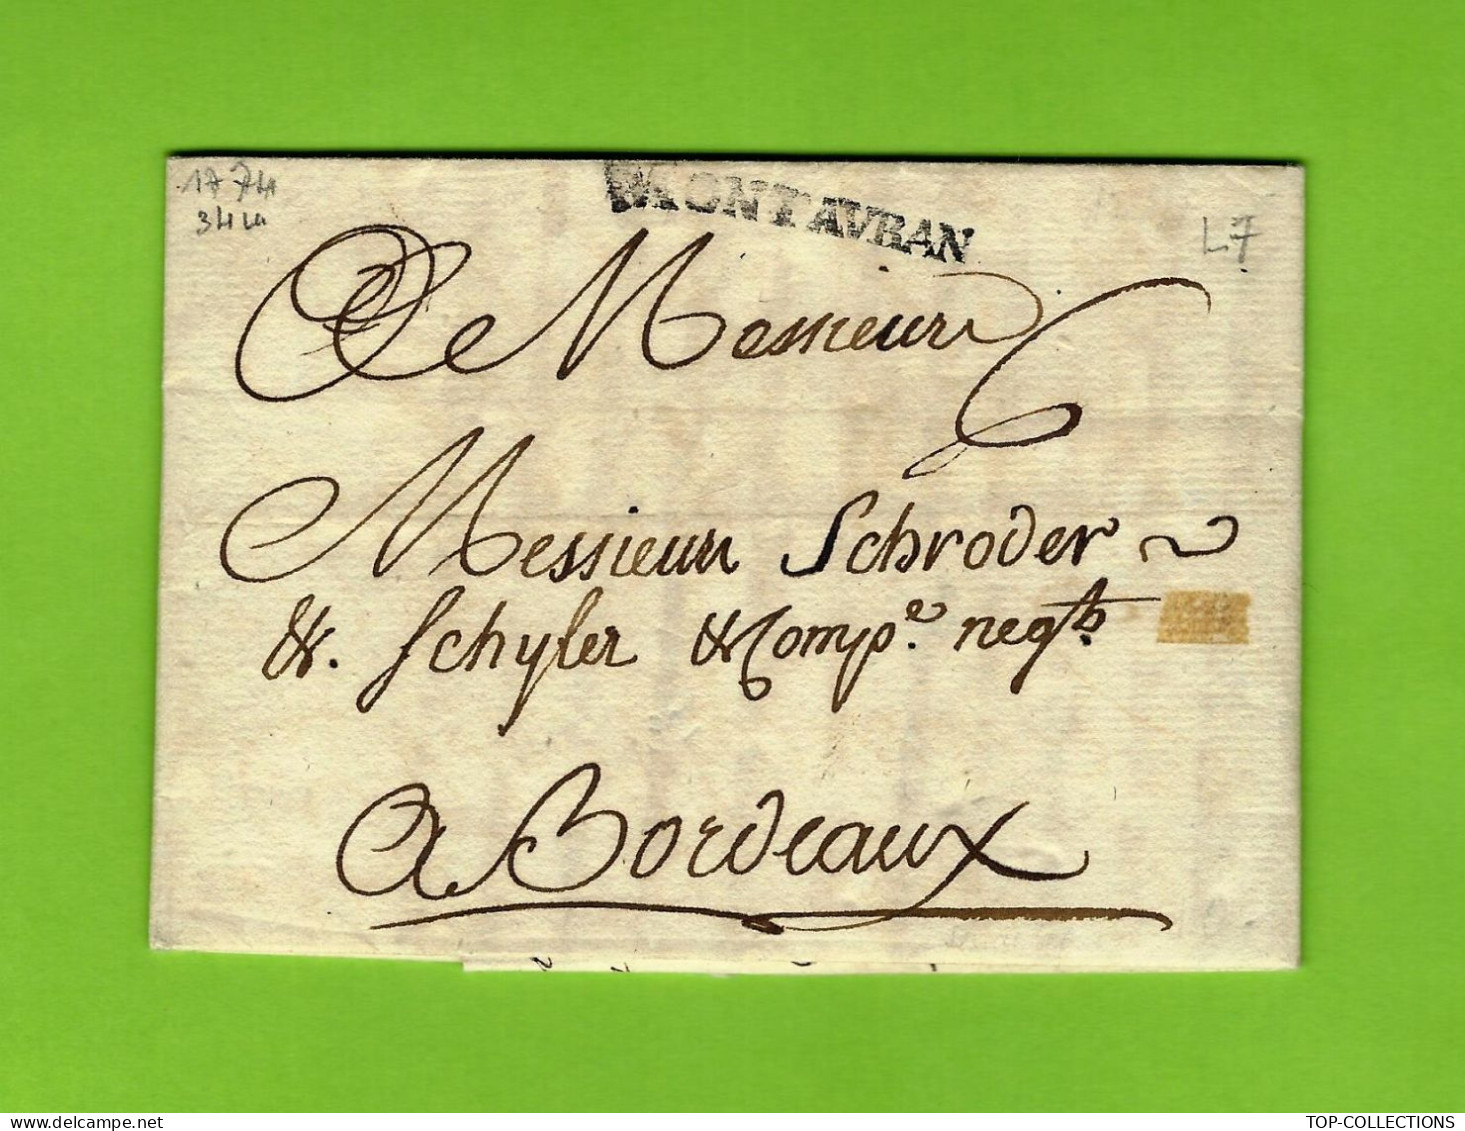 1774
34 W
MONTAVBAN
L7
A Messieurs
6
Messieurs Schroder
& Schyler & Comp.e neg.ts
A Bordeaux
TOP-COLLECTIONS